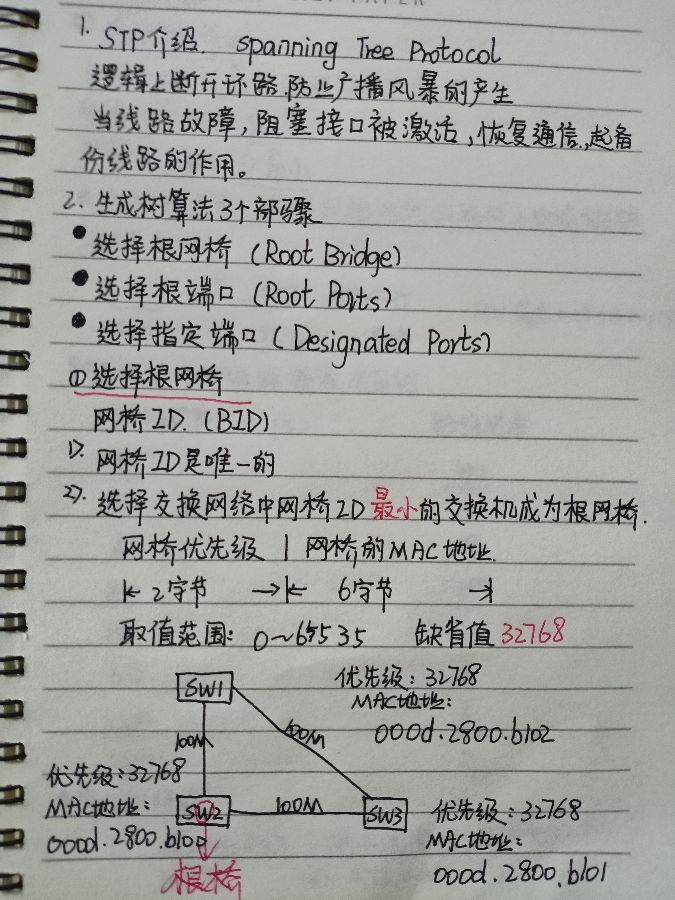 1. STP介绍. Spanning Tree Protocol
逻辑上断开环路,防止广播风暴的产生
当线路故障,阻塞接口被激活,恢复通信,起备
份线路的作用。
2. 生成树算法3个部骤
• 选择根网桥 (Root Bridge)
• 选择根端口 (Root Ports)
• 选择指定端口 (Designated Ports)
① 选择根网桥
网桥ID. (BID)
1). 网桥ID是唯一的
2). 选择交换网络中网桥ID最小的交换机成为根网桥.
网桥优先级 | 网桥的MAC地址.
|← 2字节 →|← 6字节 →|
取值范围: 0~65535 缺省值 32768
SW1
优先级: 32768
MAC地址:
000d.2800.b102
100M
100M
优先级: 32768
MAC地址:
000d.2800.b100
SW2
100M
SW3
优先级: 32768
MAC地址:
000d.2800.b101
根桥